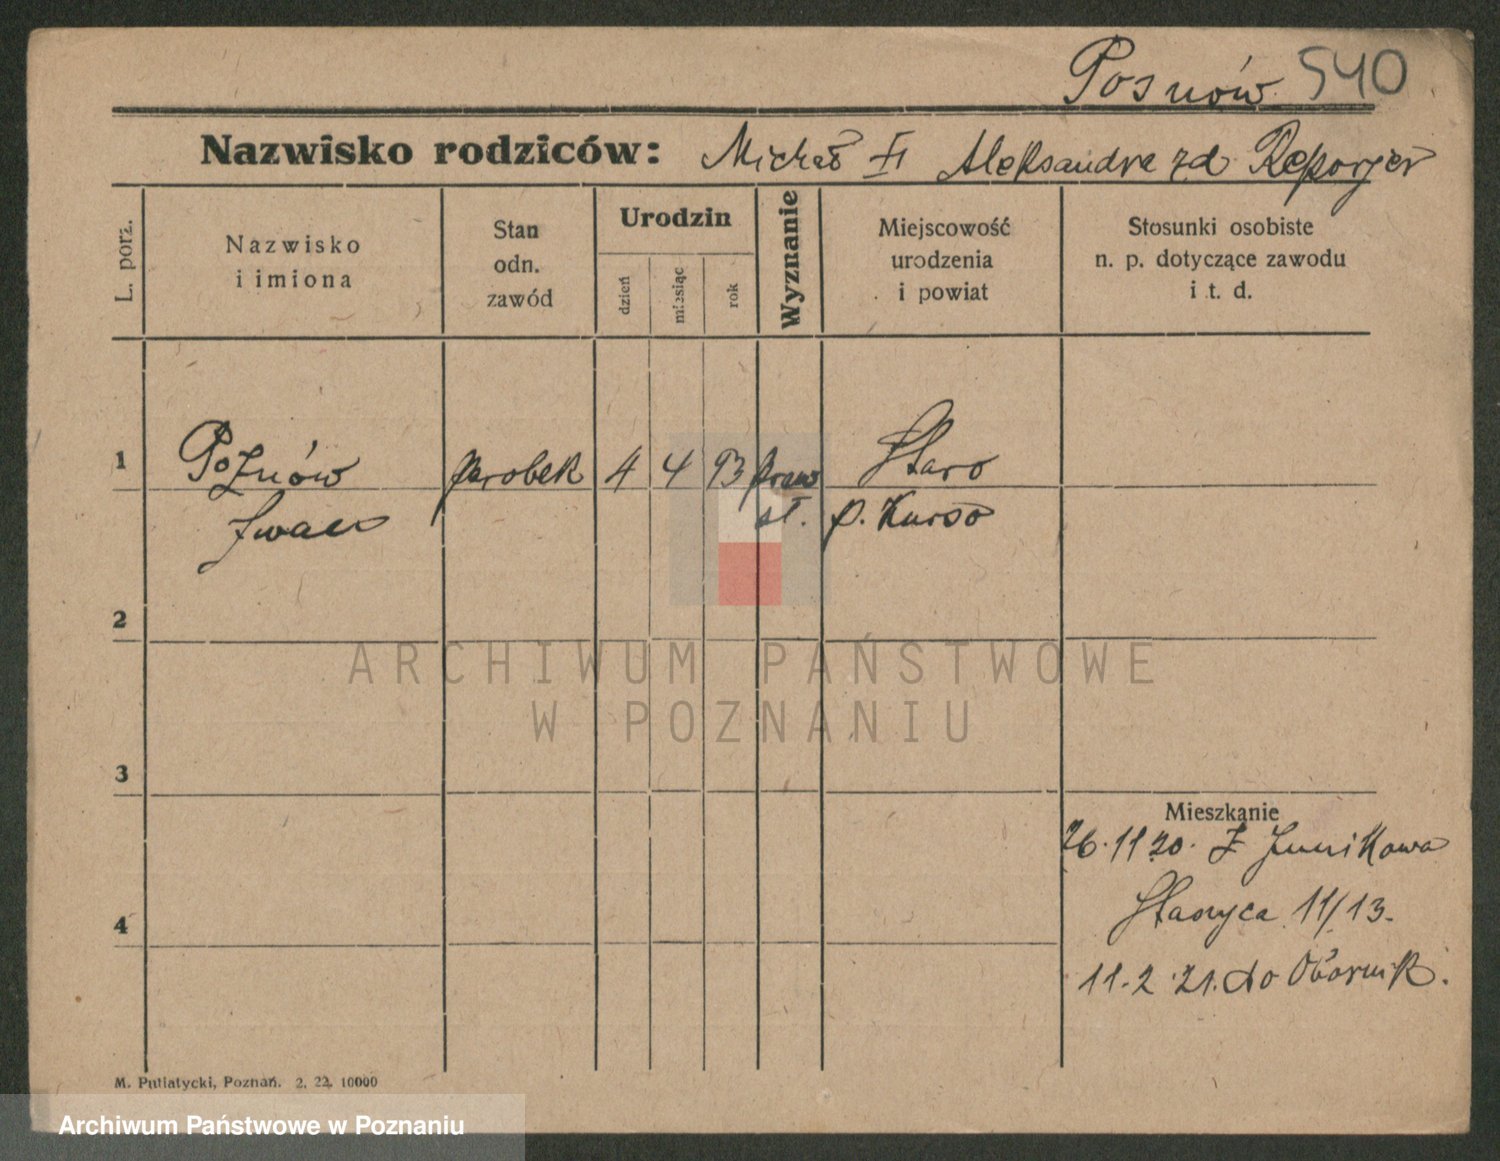 Posnów 540
Nazwisko rodziców: Michał II Aleksandra zd
L. porz.
Nazwisko
i imiona
Stan
odn.
zawód
Urodzin
dzień
miesiąc
rok
Wyznanie
Miejscowość
urodzenia
i powiat
Stosunki osobiste
n. p. dotyczące zawodu
i t. d.
1
Poznów parobek 4 4 93 praw Staro
Iwan sł. p. Kursk
2
3
4
Mieszkanie
26.11 20. Z Junikowa
11/13.
11.2.21. do Obornik.
M. Putiatycki, Poznań. 2. 22. 10000
ARCHIWUM PAŃSTWOWE
W POZNANIU
Archiwum Państwowe w Poznaniu